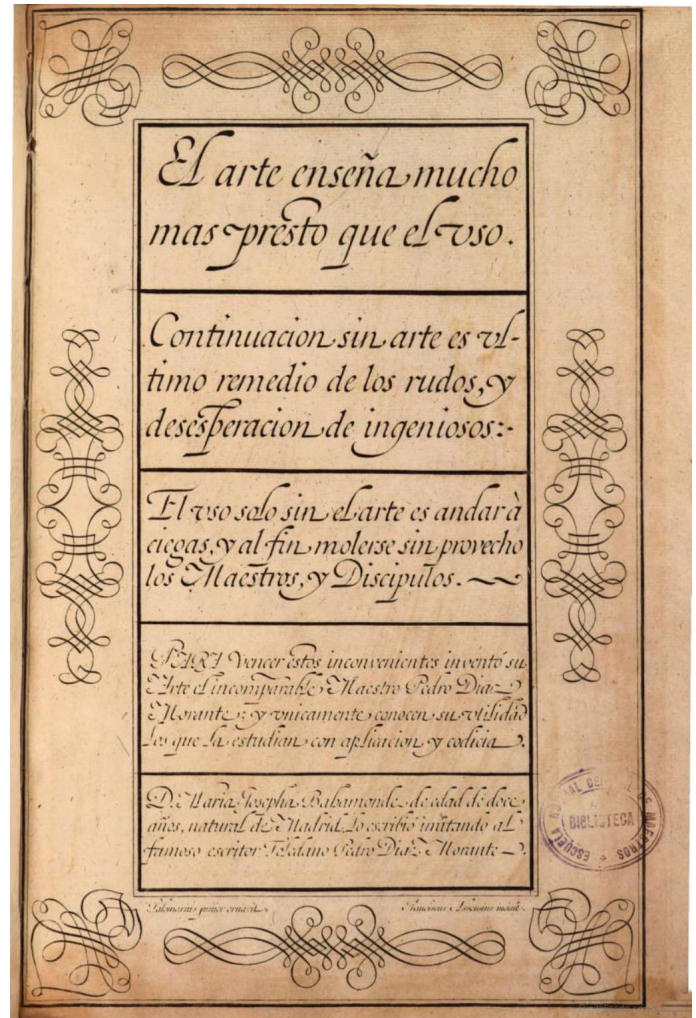 El arte enseña mucho
mas presto que el vso.
Continuacion sin arte es vl-
timo remedio de los rudos, y
desesperacion de ingeniosos:-
El vso solo sin el arte es andar à
ciegas, y al fin molerse sin provecho
los Maestros, y Discipulos.
PARA Vencer estos inconvenientes inventó su
Arte el incomparable Maestro Pedro Diaz
Morante; y vnicamente conocen su vtilidad
los que la estudian con aplicacion y codicia.
D. Maria Josepha Bahamonde de edad de doce
años, natural de Madrid, lo escribió imitando al
famoso escritor Toledano Pedro Diaz Morante.
Palomares ornavit
Franciscus Assensius incidit
BIBLIOTECA
ESCUELA MAESTROS